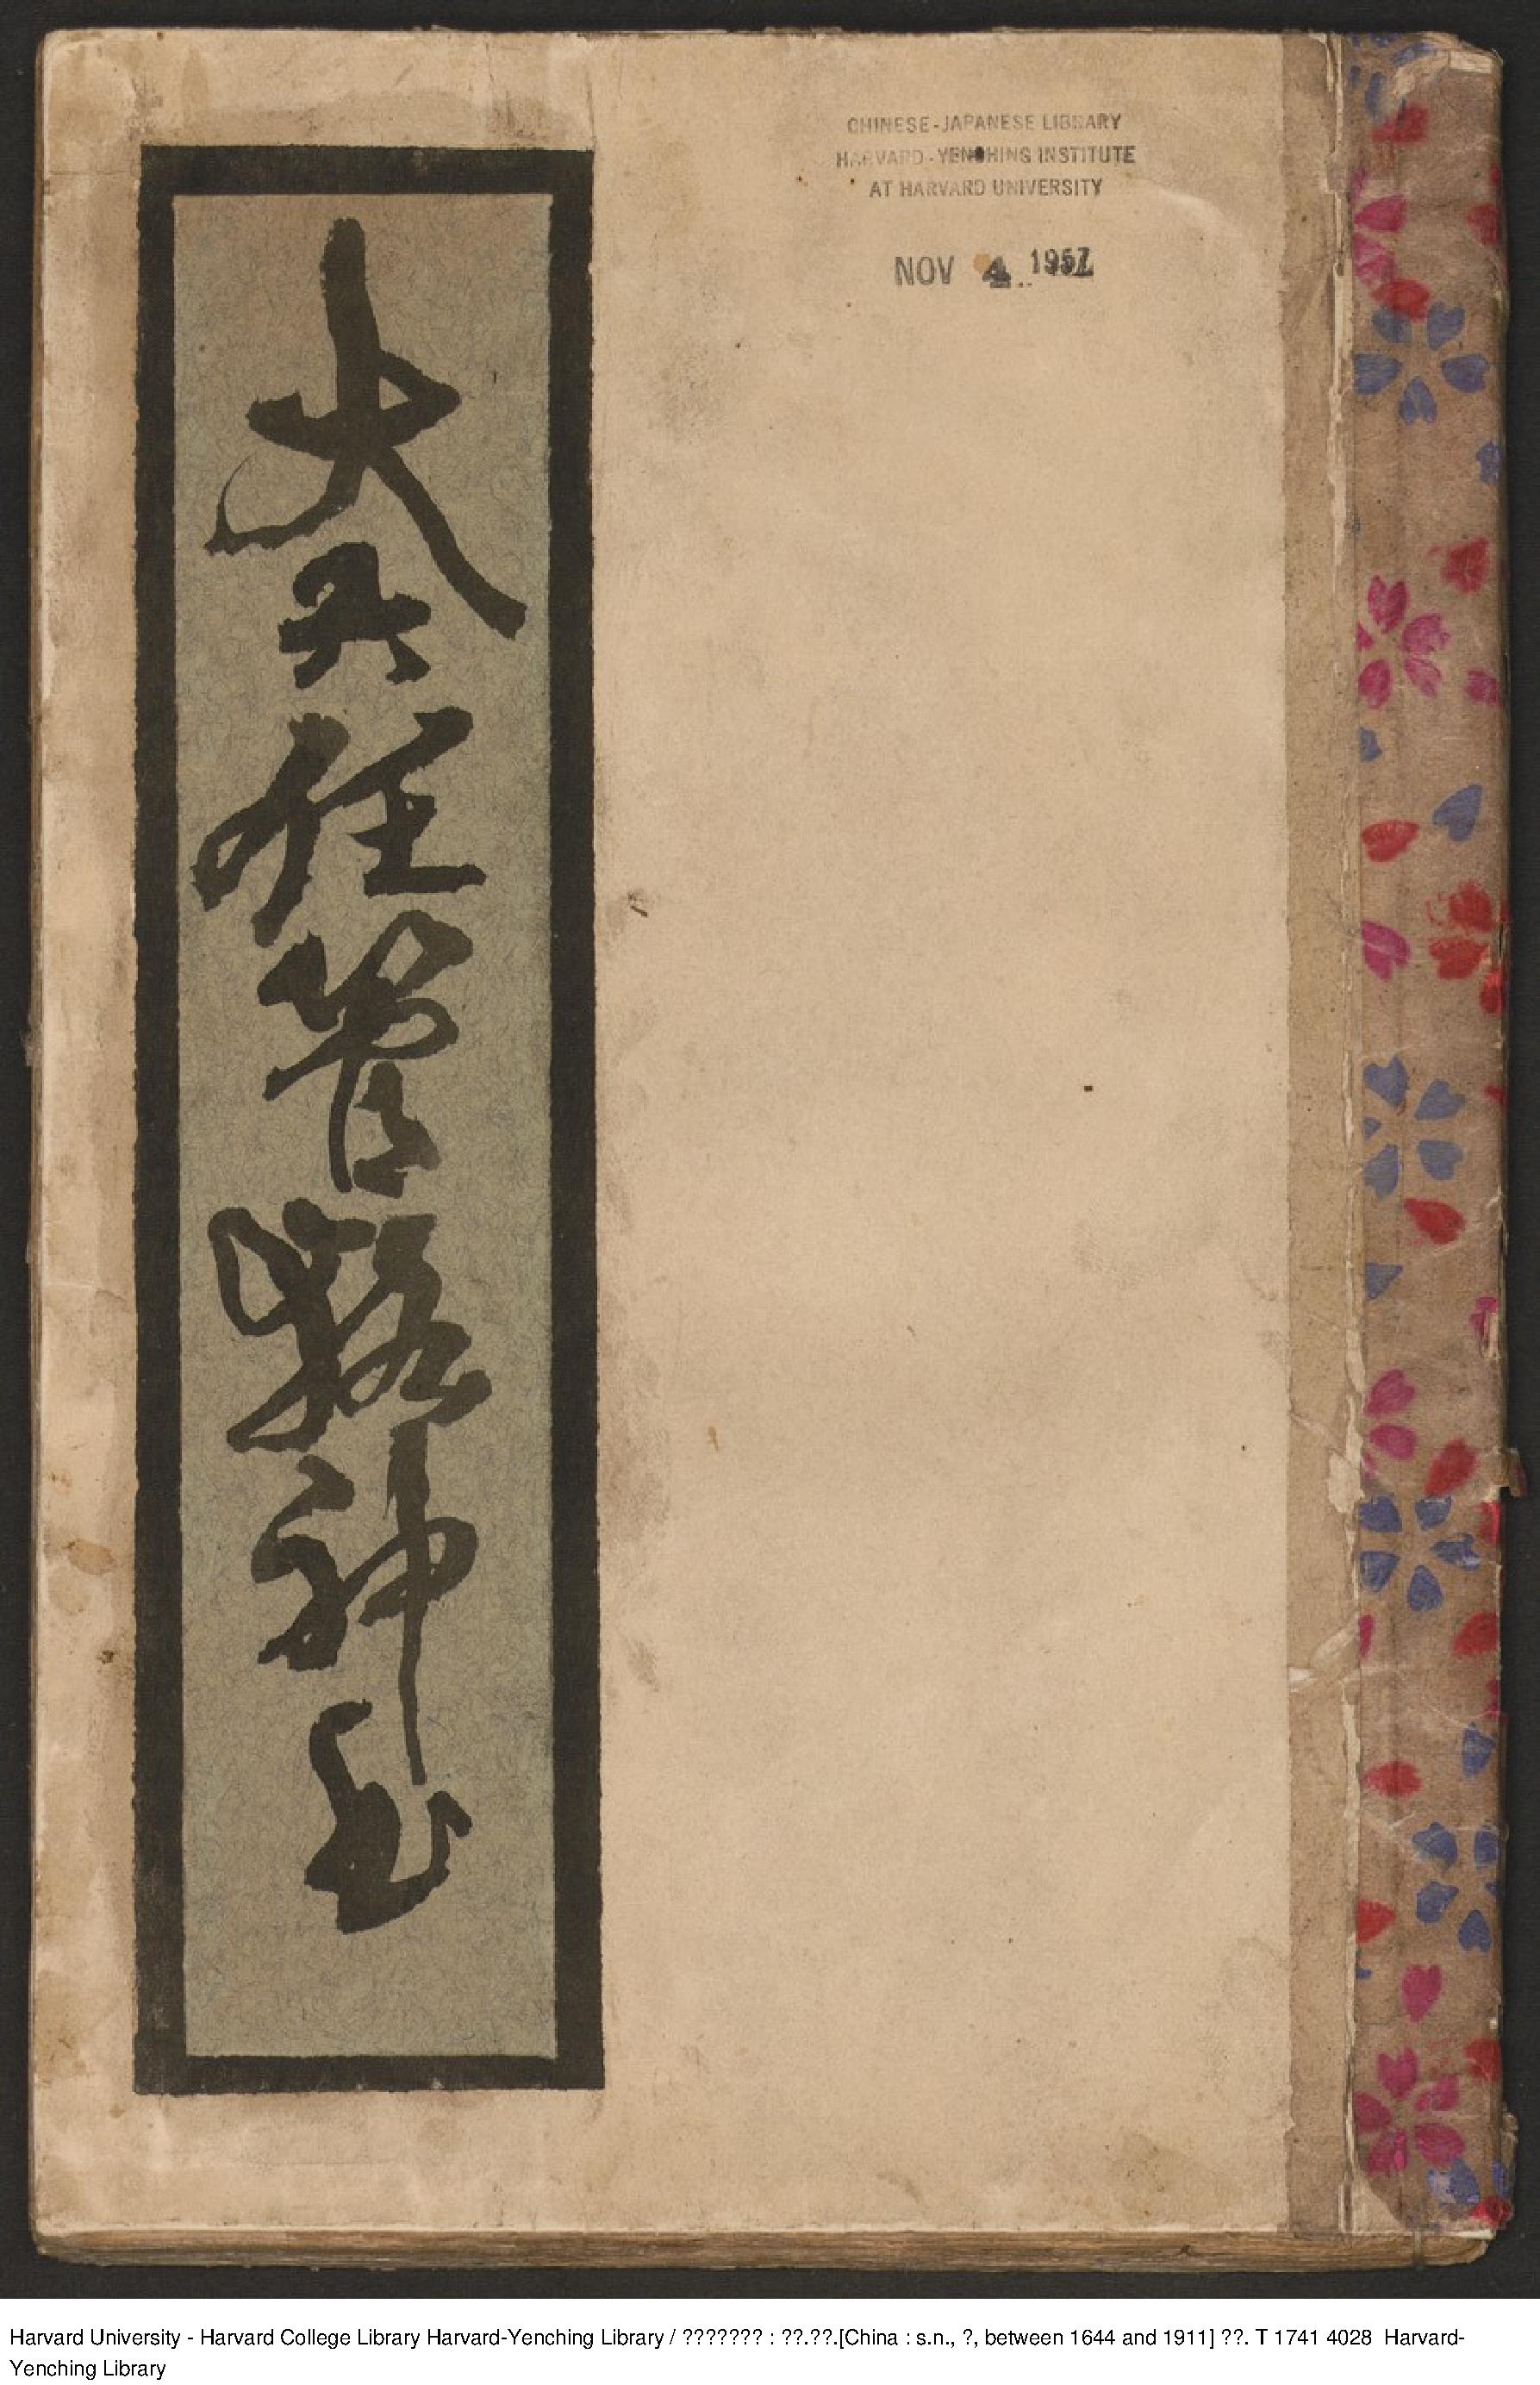 大六任管輅神書
CHINESE-JAPANESE LIBRARY
HARVARD-YENCHING INSTITUTE
AT HARVARD UNIVERSITY
NOV 4 1957
Harvard University - Harvard College Library Harvard-Yenching Library / ??????? : ??.??.[China : s.n., ?, between 1644 and 1911] ??. T 1741 4028 Harvard-
Yenching Library